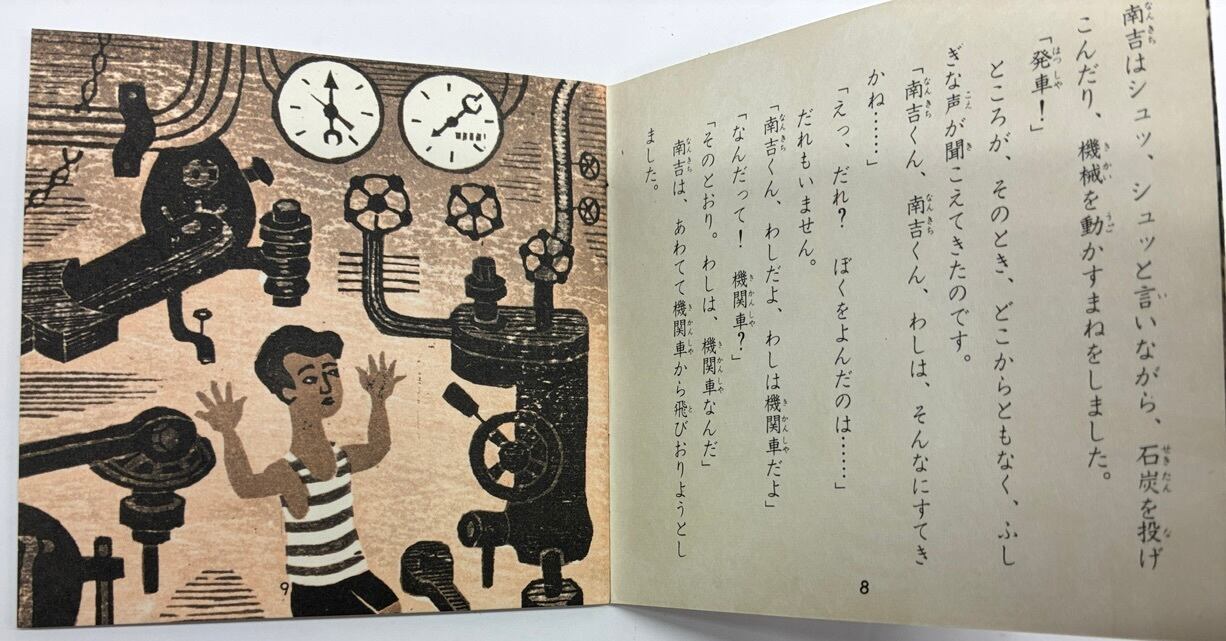 南吉はシュッ、シュッと言いながら、石炭を投げ
こんだり、機械を動かすまねをしました。
「発車！」
ところが、そのとき、どこからともなく、ふし
ぎな声が聞こえてきたのです。
「南吉くん、南吉くん、わしは、そんなにすてき
かね……」
「えっ、だれ？　ぼくをよんだのは……」
だれもいません。
「南吉くん、わしだよ、わしは機関車だよ」
「なんだって！　機関車？」
「そのとおり。わしは、機関車なんだ」
南吉は、あわてて機関車から飛びおりようとし
ました。
8
9